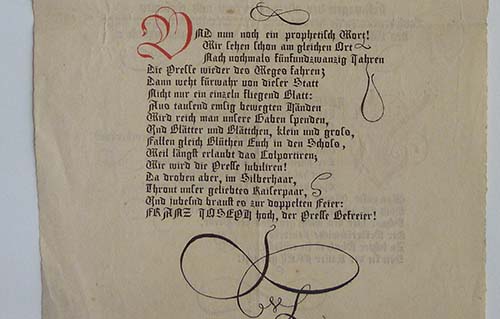 UND nun noch ein prophetisch Wort!
Wir sehen schon am gleichen Ort
Nach nochmals fünfundzwanzig Jahren
Die Presse wieder des Weges fahren;
Dann weht fürwahr von dieser Statt
Nicht nur ein einzeln fliegend Blatt:
Aus tausend emsig bewegten Händen
Wird reich man unsere Gaben spenden,
Und Blätter und Blättchen, klein und gross,
Fallen gleich Blüthen Euch in den Schoss,
Weil längst erlaubt das Colportiren;
Wie wird die Presse jubiliren!
Da droben aber, im Silberhaar,
Thront unser geliebtes Kaiserpaar,
Und jubelnd braust es zur doppelten Feier:
FRANZ JOSEPH hoch, der Presse Befreier!